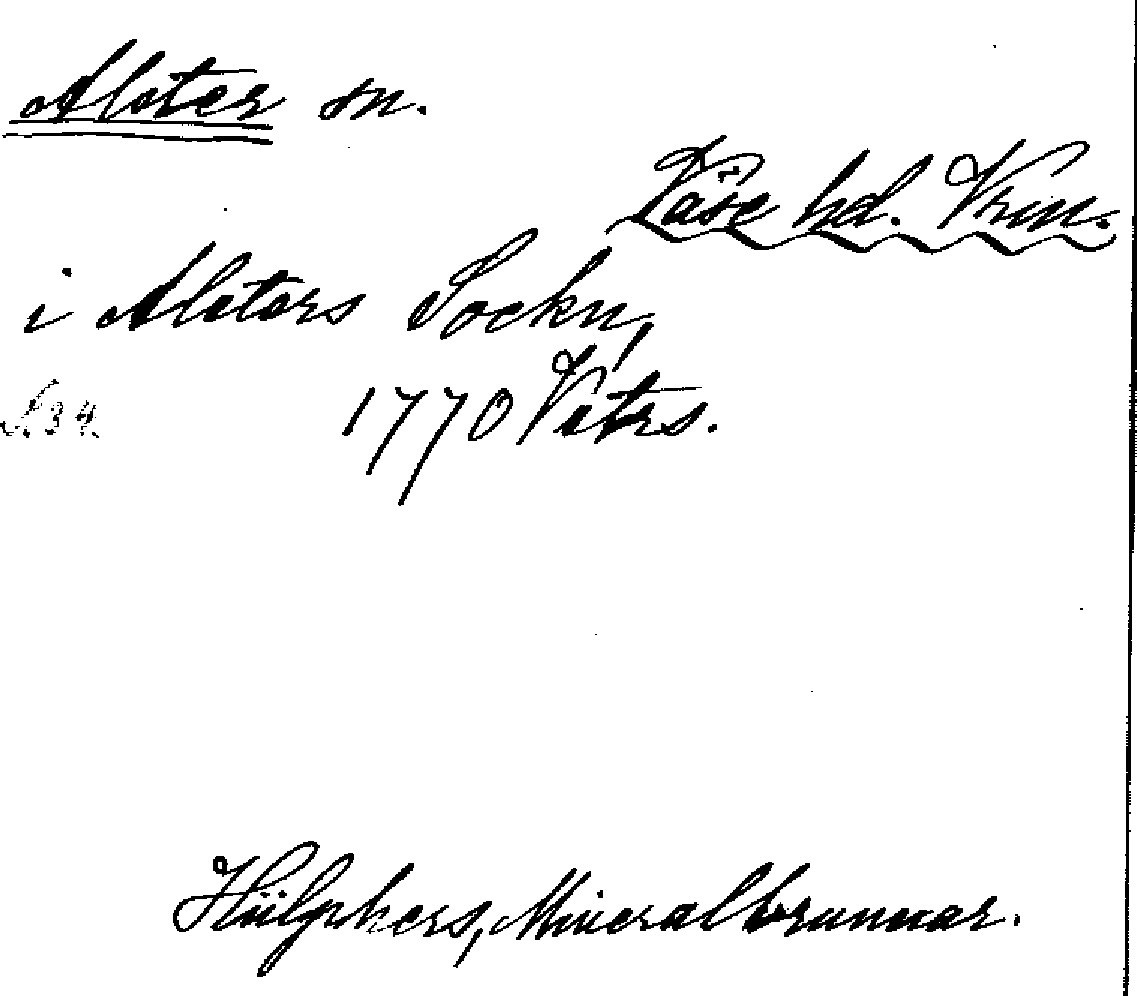 Alster sn.
Väse hd. Vrm.
i Alsters Sockn,
S. 34. 1770 Vstrs.
Hülphers, Mineralbrunnar.